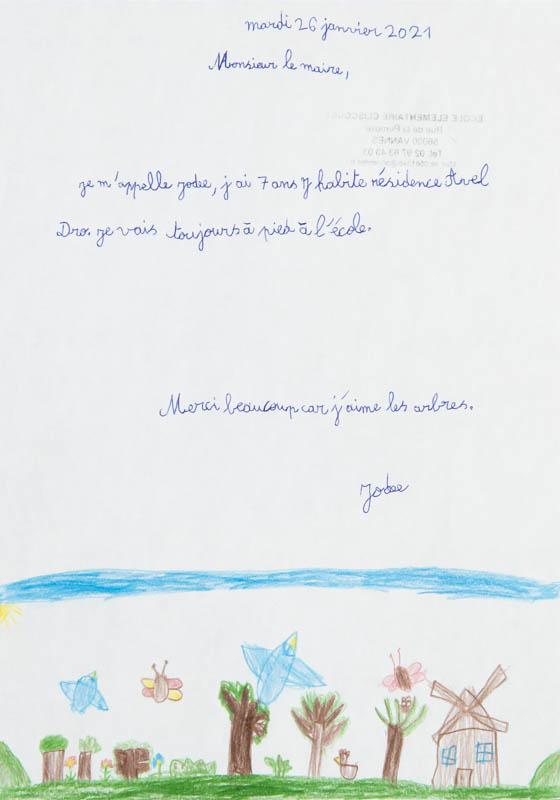 mardi 26 janvier 2021
Monsieur le maire,
ECOLE ELEMENTAIRE CLISCOUET
Rue de la Pomone
56000 VANNES
Tél. 02 97 63 43 03
je m'appelle Jodee, j'ai 7 ans J'habite résidence Avel
Dro. Je vais toujours à pied à l'école.
Merci beaucoup car j'aime les arbres.
Jodee